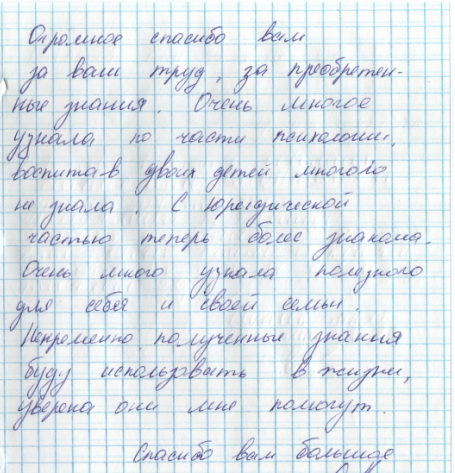 Огромное спасибо вам
за ваш труд, за преобретен-
ные знания. Очень многое
узнала по части психологии,
воспитав двоих детей многого
не знала. С юридической
частью теперь более знакома.
Очень много узнала полезного
для себя и своей семьи.
Непременно полученные знания
буду использовать в жизни,
уверена они мне помогут.
Спасибо вам большое